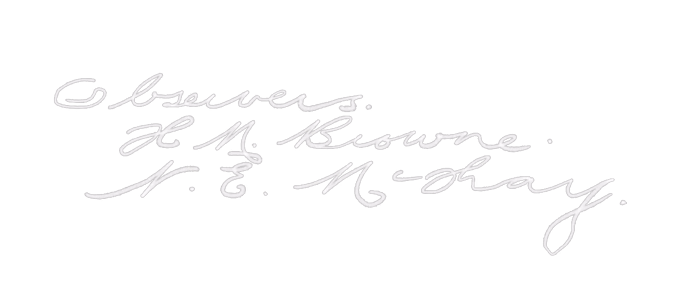 Observers.
H M. Browne.
N. E. McShay.